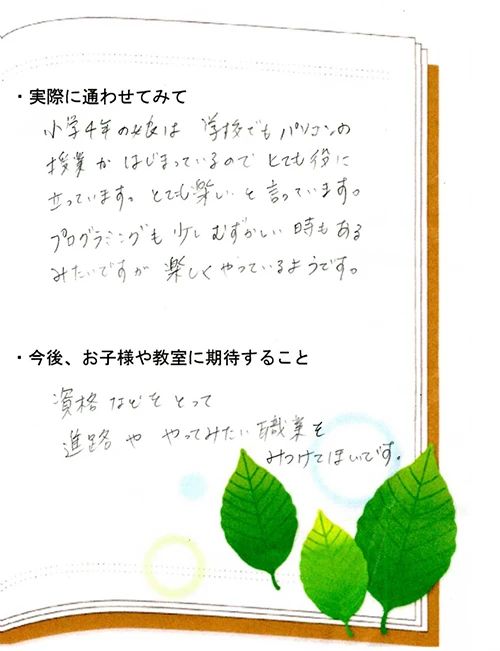 ・実際に通わせてみて
小学4年の娘は 学校でもパソコンの
授業が はじまっているので とても役に
立っています。とても楽しいと言っています。
プログラミングも少しむずかしい時もある
みたいですが楽しくやっているようです。
・今後、お子様や教室に期待すること
資格などをとって
進路や やってみたい職業を
みつけてほしいです。